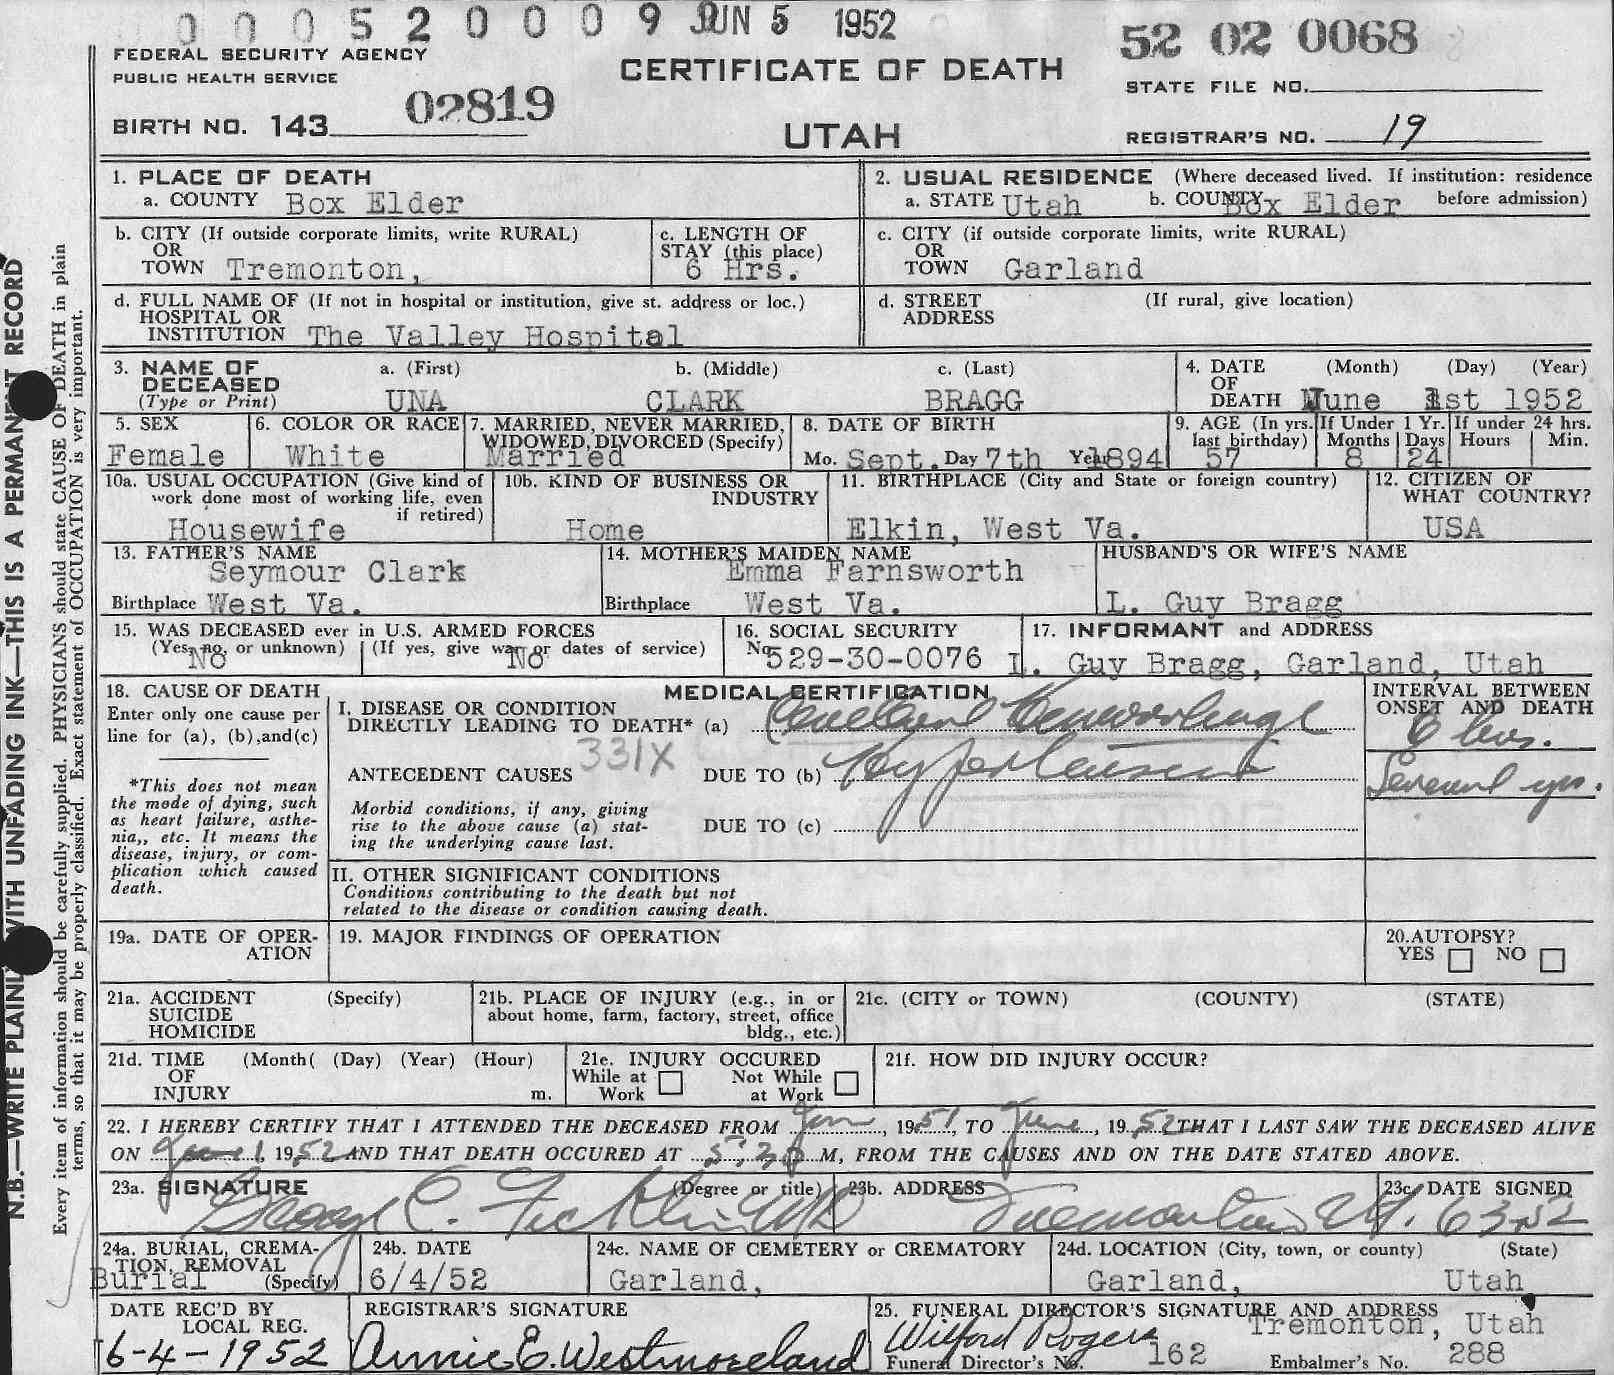 0 0 0 5 2 0 0 0 9 JUN 5 1952
52 02 0068
FEDERAL SECURITY AGENCY
PUBLIC HEALTH SERVICE
CERTIFICATE OF DEATH
STATE FILE NO.
BIRTH NO. 143 02819
UTAH
REGISTRAR'S NO. 19
1. PLACE OF DEATH
a. COUNTY Box Elder
2. USUAL RESIDENCE (Where deceased lived. If institution: residence
a. STATE Utah b. COUNTY Box Elder before admission)
b. CITY (If outside corporate limits, write RURAL)
OR
TOWN Tremonton,
c. LENGTH OF
STAY (this place)
6 Hrs.
c. CITY (if outside corporate limits, write RURAL)
OR
TOWN Garland
d. FULL NAME OF (If not in hospital or institution, give st. address or loc.)
HOSPITAL OR
INSTITUTION The Valley Hospital
d. STREET (If rural, give location)
ADDRESS
3. NAME OF a. (First) b. (Middle) c. (Last)
DECEASED
(Type or Print) UNA CLARK BRAGG
4. DATE (Month) (Day) (Year)
OF
DEATH June 1st 1952
5. SEX
Female
6. COLOR OR RACE
White
7. MARRIED, NEVER MARRIED,
WIDOWED, DIVORCED (Specify)
Married
8. DATE OF BIRTH
Mo. Sept. Day 7th Year 1894
9. AGE (In yrs. If Under 1 Yr. If under 24 hrs.
last birthday) Months Days Hours Min.
57 8 24
10a. USUAL OCCUPATION (Give kind of
work done most of working life, even
if retired)
Housewife
10b. KIND OF BUSINESS OR
INDUSTRY
Home
11. BIRTHPLACE (City and State or foreign country)
Elkin, West Va.
12. CITIZEN OF
WHAT COUNTRY?
USA
13. FATHER'S NAME
Seymour Clark
Birthplace West Va.
14. MOTHER'S MAIDEN NAME
Emma Farnsworth
Birthplace West Va.
HUSBAND'S OR WIFE'S NAME
L. Guy Bragg
15. WAS DECEASED ever in U.S. ARMED FORCES
(Yes, no, or unknown) (If yes, give war or dates of service)
No No
16. SOCIAL SECURITY
No. 529-30-0076
17. INFORMANT and ADDRESS
L. Guy Bragg, Garland, Utah
18. CAUSE OF DEATH
Enter only one cause per
line for (a), (b), and (c)
*This does not mean
the mode of dying, such
as heart failure, asthe-
nia,, etc. It means the
disease, injury, or com-
plication which caused
death.
MEDICAL CERTIFICATION
I. DISEASE OR CONDITION
DIRECTLY LEADING TO DEATH* (a) Cerebral Hemorrhage
331X
ANTECEDENT CAUSES DUE TO (b) Hypertension
Morbid conditions, if any, giving
rise to the above cause (a) stat-
ing the underlying cause last.
DUE TO (c)
INTERVAL BETWEEN
ONSET AND DEATH
6 hrs.
Several yrs.
II. OTHER SIGNIFICANT CONDITIONS
Conditions contributing to the death but not
related to the disease or condition causing death.
19a. DATE OF OPER-
ATION
19. MAJOR FINDINGS OF OPERATION
20. AUTOPSY?
YES NO
21a. ACCIDENT (Specify)
SUICIDE
HOMICIDE
21b. PLACE OF INJURY (e.g., in or
about home, farm, factory, street, office
bldg., etc.)
21c. (CITY or TOWN) (COUNTY) (STATE)
21d. TIME (Month( (Day) (Year) (Hour)
OF
INJURY m.
21e. INJURY OCCURED
While at Not While
Work at Work
21f. HOW DID INJURY OCCUR?
22. I HEREBY CERTIFY THAT I ATTENDED THE DECEASED FROM Jan, 1951, TO June, 1952 THAT I LAST SAW THE DECEASED ALIVE
ON June 1, 1952 AND THAT DEATH OCCURED AT 5:30 M, FROM THE CAUSES AND ON THE DATE STATED ABOVE.
23a. SIGNATURE (Degree or title)
George C. Ficklin MD
23b. ADDRESS
Tremonton Ut.
23c. DATE SIGNED
6 3 52
24a. BURIAL, CREMA-
TION, REMOVAL
(Specify)
Burial
24b. DATE
6/4/52
24c. NAME OF CEMETERY or CREMATORY
Garland,
24d. LOCATION (City, town, or county) (State)
Garland, Utah
DATE REC'D BY
LOCAL REG.
6-4-1952
REGISTRAR'S SIGNATURE
Annie E. Westmoreland
25. FUNERAL DIRECTOR'S SIGNATURE AND ADDRESS
Wilford Rogers Tremonton, Utah
Funeral Director's No. 162 Embalmer's No. 288
N.B.—WRITE PLAINLY WITH UNFADING INK—THIS IS A PERMANENT RECORD
Every item of information should be carefully supplied. PHYSICIANS should state CAUSE OF DEATH in plain
terms, so that it may be properly classified. Exact statement of OCCUPATION is very important.